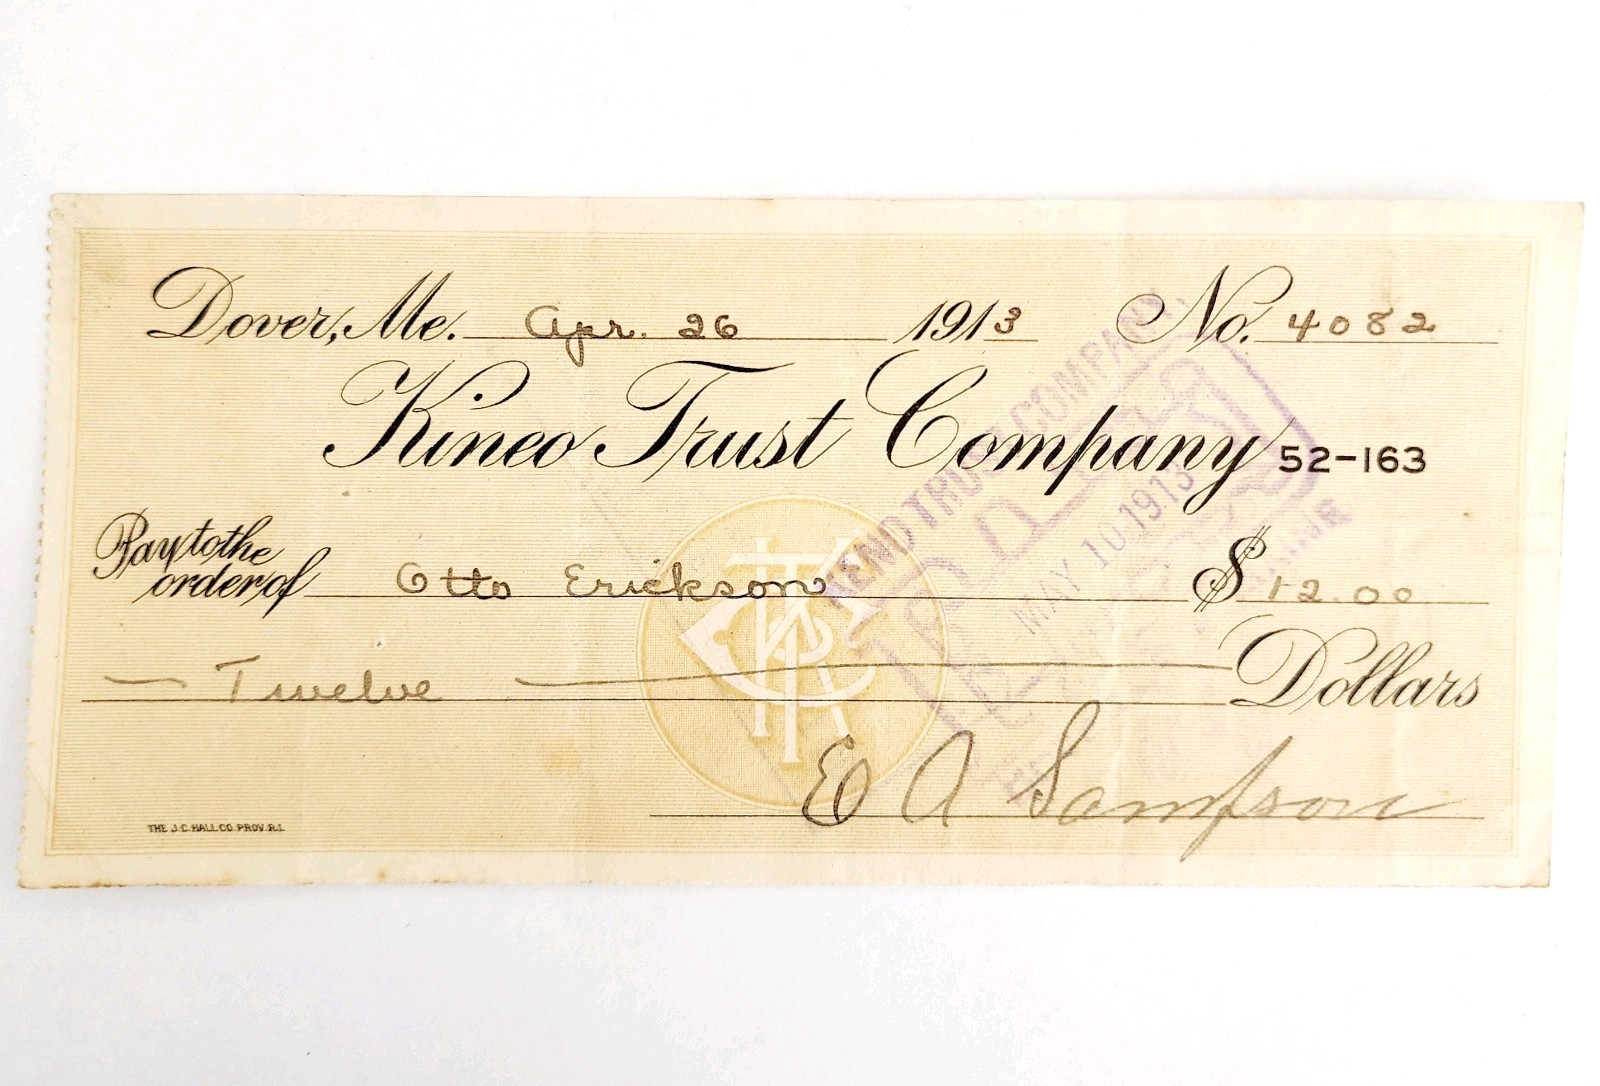 Dover, Me. Apr. 26 1913 No. 4082
Kineo Trust Company 52-163
Pay to the order of Otto Erickson $ 12.00
Twelve Dollars
E A Sampson
THE J.C. HALL CO. PROV. R.I.
TRUST COMPANY
PAID
MAY 10 1913